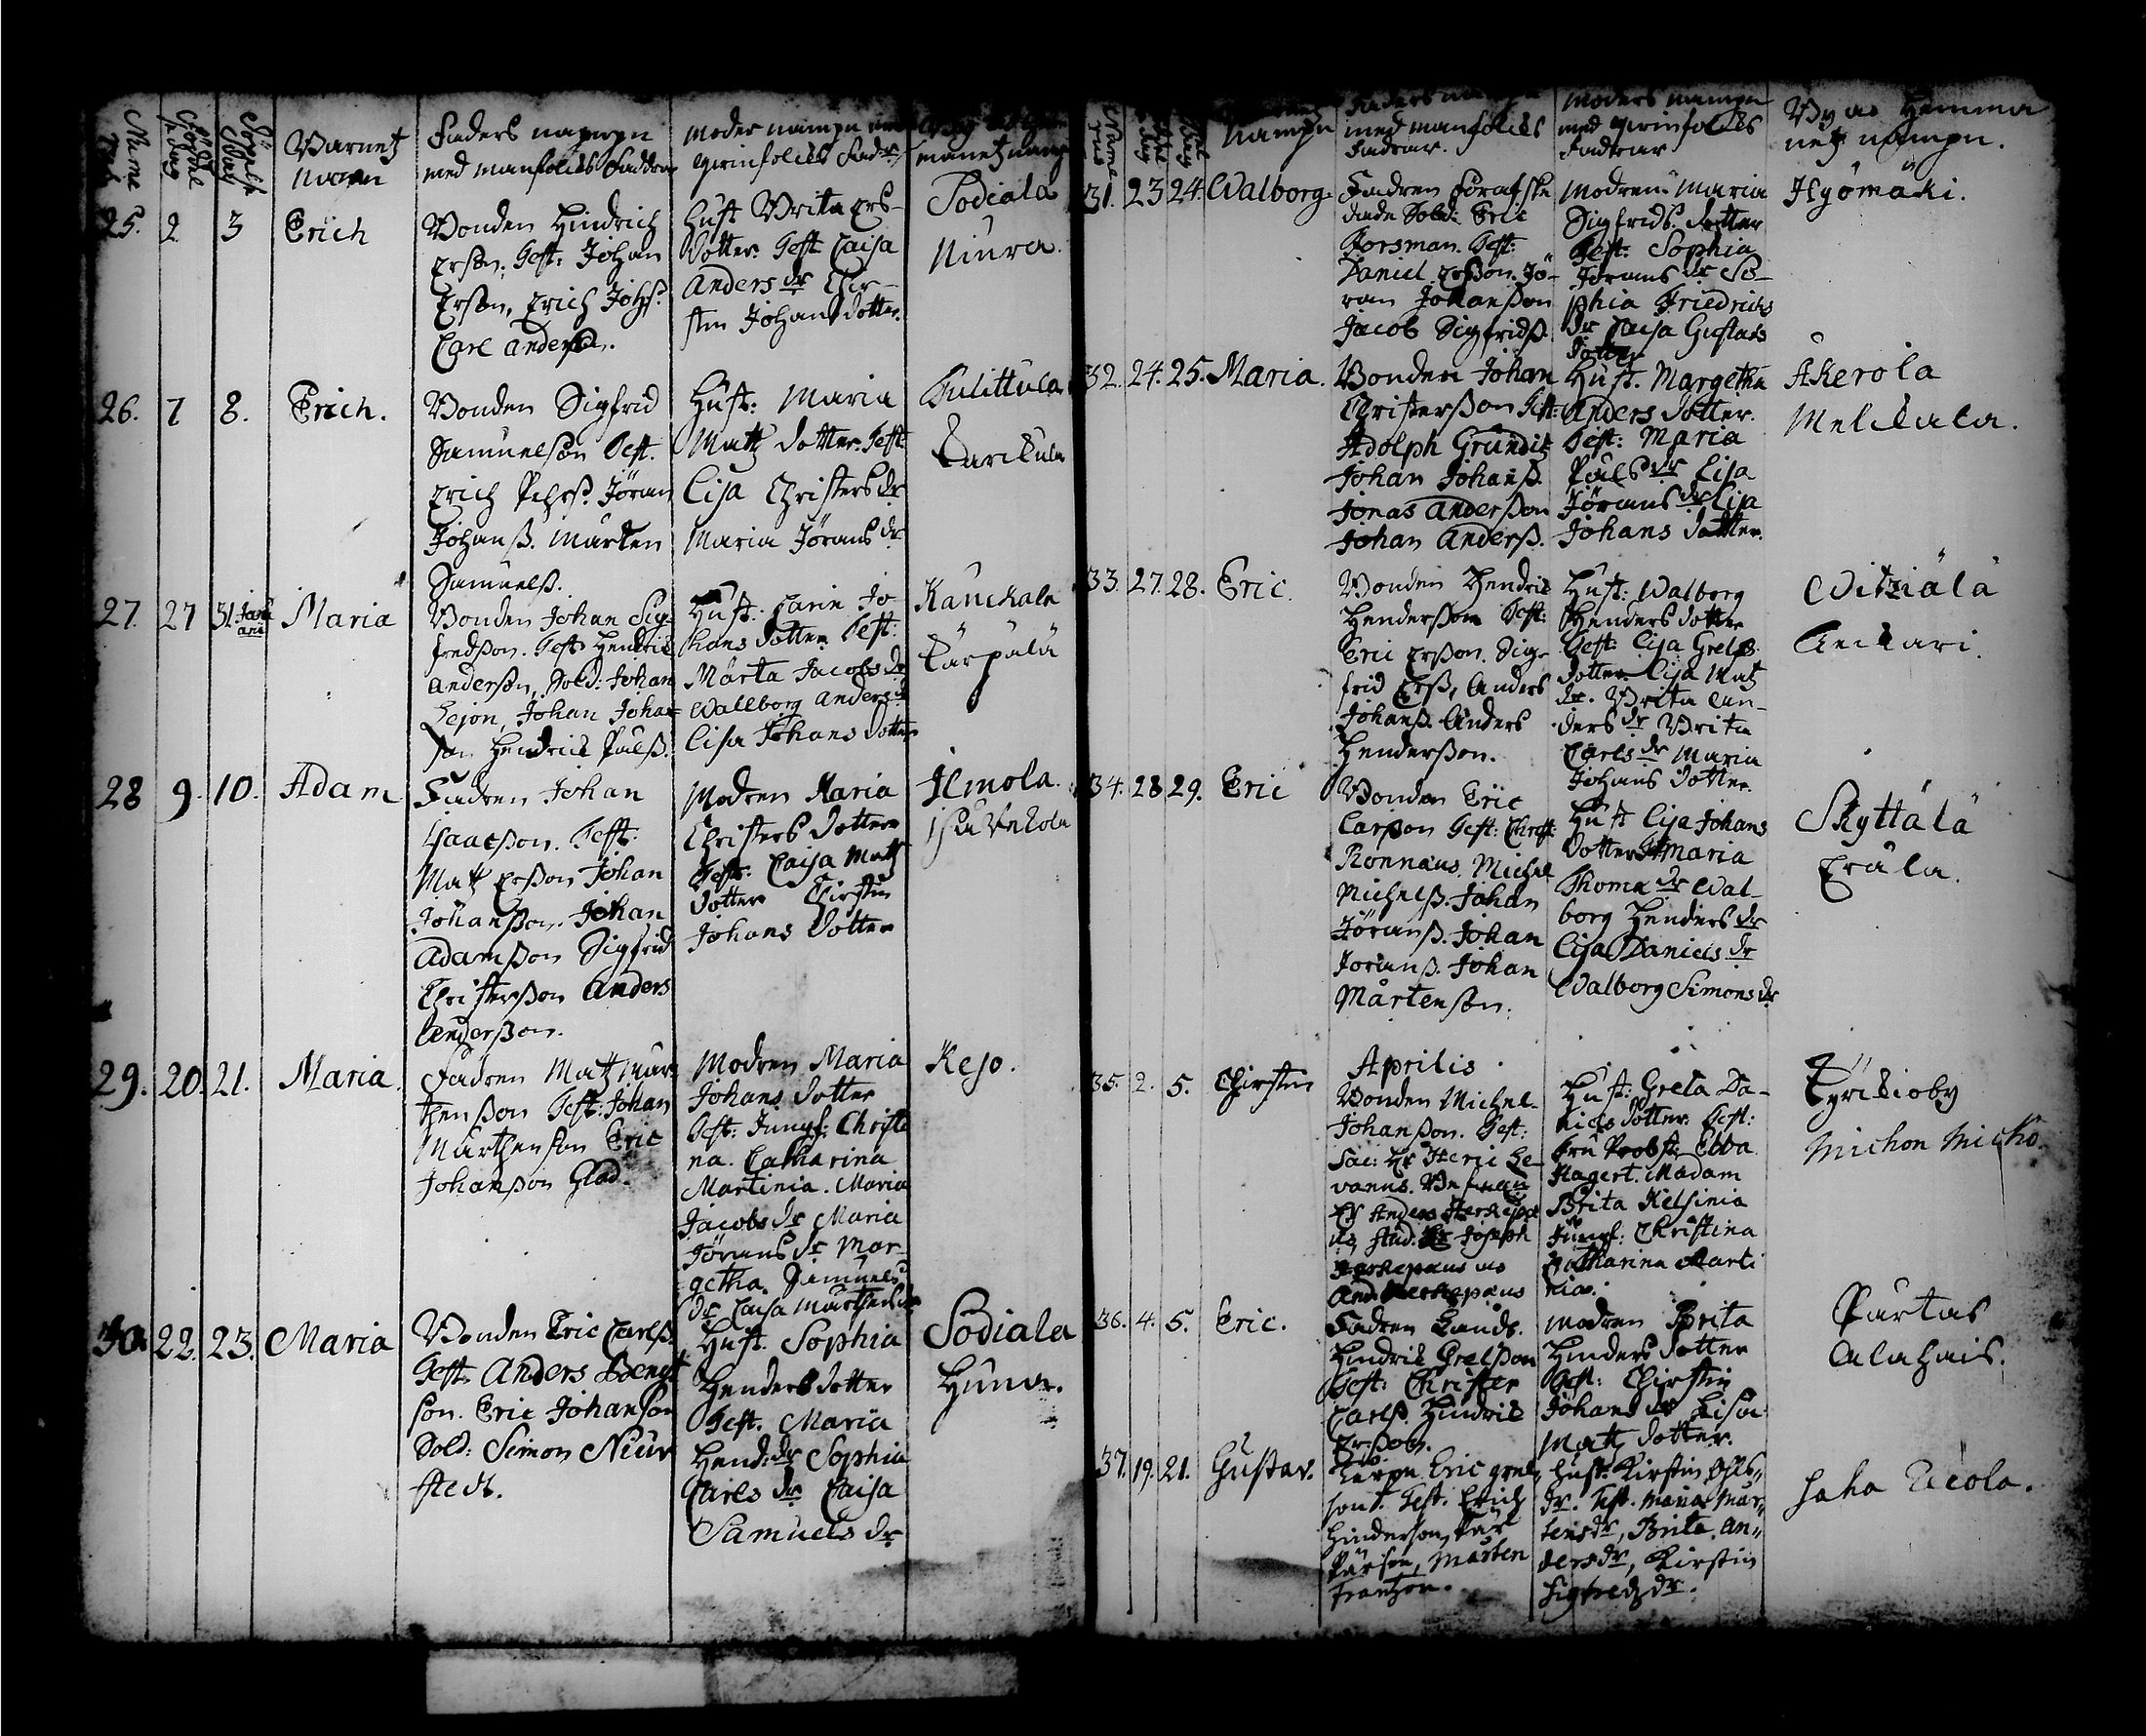 Barnetz
Namn
Faders nampn
med manfolkes Faddrar
Moders nampn
qvinfolkes Fadr
25. 2 3 Erich
Bonden Hindrich
Erson. Test: Johan
Erson, Erich Johss.
Carl Anderson.
Hust. Brita Ers-
dotter. Test Caisa
Anders dr Chir-
stin Johans dotter.
Sodiala
Niura.
26. 7 8. Erich.
Bonden Sigfrid
Samuelson Test.
Erich Pehrss. Jöran
Johanss. Mårten
Samuelss.
Hust: Maria
Matz dotter. Test
Lisa Christers dr
Maria Jörans dr
27. 27 31. Janu
arii Maria
Bonden Johan Sig-
fredsson. Test. Hendric
Anderson, Sold: Johan
Lejon, Johan Johan
son Hendric Pålss.
Hust: Carin Jo
hans dotter Test:
Märta Jacobs dr
Wallborg Anders dr
Lisa Johans dotter
Kauckala
Cärpälä
28 9. 10. Adam
Fadren Johan
Isaacsson. Test:
Matz Ersson Johan
Johansson. Johan
Adamsson Sigfrid
Christersson Anders
Andersson.
Modren Maria
Christers dotter
Test: Caisa Matz
dotter Chirstin
Johans dotter
Ilmola.
29. 20. 21. Maria.
Fadren Matz Mår-
thensson Test: Johan
Mårthenson Eric
Johansson Glad.
Modren Maria
Johans dotter
Test: Jungf: Christi
na. Catharina
Martinia. Maria
Jacobs dr Maria
Jörans dr Mar-
getha Samuels
dr Caisa Mårthens dr
Kejo.
30. 22. 23. Maria
Bonden Eric Carlss.
Test. Anders Bengt
son. Eric Johanson
Sold: Simon Niur
stedt.
Hust. Sophia
Henders dotter
Test. Maria
Hend: dr Sophia
Carls dr Caisa
Samuels dr
Sodiala
nampn
Faders
med manfolkes
fadrar.
Moders nampn
med qvinfolkes
Fadrar
By ac Hemma
netz nampn.
31. 23 24. Walborg
Fadren Forafske
dade Sold: Eric
Forsman. Test:
Daniel Ersson. Jö-
ran Johansson
Jacob Sigfridss.
Modren: Maria
Sigfrids dotter
Test: Sophia
Jörans dr So-
phia Friedrichs
dr Caisa Gustavs
dotter
Hyömäki.
32. 24. 25. Maria.
Bonden Johan
Christersson Test:
Adolph Grundit
Johan Johanss.
Jonas Andersson
Johan Anderss.
Hust. Margetha
Anders dotter.
Test: Maria
Påls dr Lisa
Jörans dr Lisa
Johans dotter.
Åkerola
33. 27. 28. Eric.
Bonden Hendric
Hendersson Test:
Eric Ersson. Sig-
frid Erss, Anders
Johanss. Anders
Hendersson.
Hust: Walborg
Henders dotter
Test: Lisa Grels
dotter Lisa Matz
dr. Brita An-
ders dr Brita
Carls dr Maria
Johans dotter.
34. 28 29. Eric
Bonden Eric
Carsson Test: Christ:
Ronnæus. Michel
Michelss. Johan
Jöranss. Johan
Joranss. Johan
Mårtenson.
Hust Lisa Johans
dotter Maria
Thoma dr Wal-
borg Henders dr
Lisa Daniels dr
Walborg Simons dr
Skyttälä
Eräla.
Aprilis
35. 2. 5. Chirstin
Bonden Michel
Johansson. Test:
Hust: Greta Da-
niels dotter. Test:
Fru Probst: Ebba
Hagert. Madam
Brita Kelsinia
Jungf: Christina
Catharina Marti
nia.
36. 4. 5. Eric.
Fadren Lands.
Hindric Grelsson
Test: Christer
Carlss. Hindric
Ersson.
Modren Brita
Hinders dotter
Test: Chirstin
Johans dr Lisa
Matz dotter.
Purtas
Alahais.
37. 19. 21. Gustav.
Eric Grels
son. Test. Erich
Hinderson, Pär
Pärson, Mårten
Frantzon.
Hust. Kirstin Ohls-
dr. Test. Maria Mår-
tens dr, Brita An-
ders dr, Kirstin
Sigfredz dr.